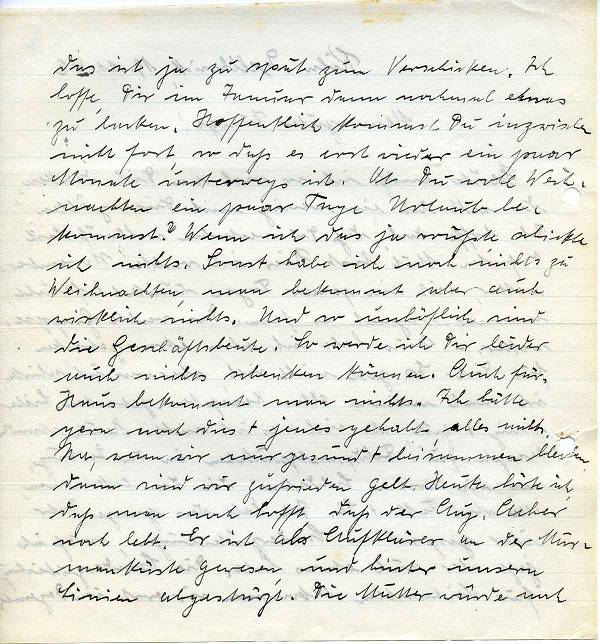 das ist ja zu spät zum Verschicken. Ich
hoffe, Dir im Januar dann nochmal etwas
zu backen. Hoffentlich kommst Du inzwischen
nicht fort, so daß es erst wieder ein paar
Monate unterwegs ist. Ob Du wohl Weih-
nachten ein paar Tage Urlaub be-
kommst? Wenn ich das ja wüßte schickte
ich nichts. Sonst habe ich noch nichts zu
Weihnachten, man bekommt aber auch
wirklich nichts. Und so unhöflich sind
die Geschäftsleute. So werde ich Dir leider
auch nichts schenken können. Auch für's
Haus bekommt man nichts. Ich hätte
gern noch dies + jenes gehabt alles nichts.
Na, wenn wir nur gesund + beisammen bleiben,
dann sind wir zufrieden gelt. Heute hörte ich,
daß man noch hofft daß der Aug.
noch lebt. Er ist als Aufklärer an der Mur-
manküste gewesen und hinter unsern
Linien abgestürzt. Die Mutter würde noch